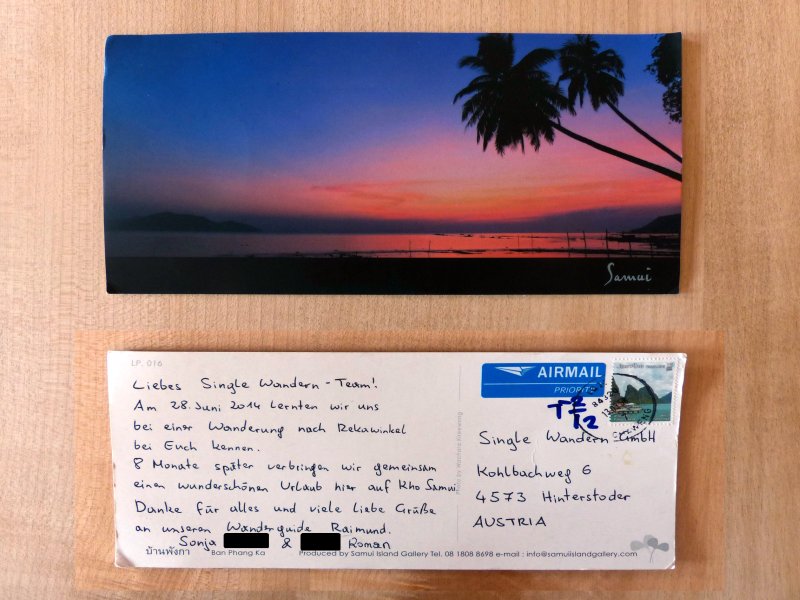 Samui
LP. 016
Liebes Single Wandern-Team!
Am 28. Juni 2014 lernten wir uns
bei einer Wanderung nach Rekawinkel
bei Euch kennen.
8 Monate später verbringen wir gemeinsam
einen wunderschönen Urlaub hier auf Kho Samui.
Danke für alles und viele liebe Grüße
an unseren Wanderguide Raimund.
Sonja & Roman
บ้านพังกา Ban Phang Ka Produced by Samui Island Gallery Tel. 08 1808 8698 e-mail : info@samuiislandgallery.com
AIRMAIL
PRIORITY
Single Wandern GmbH
Kohlbachweg 6
4573 Hinterstoder
AUSTRIA